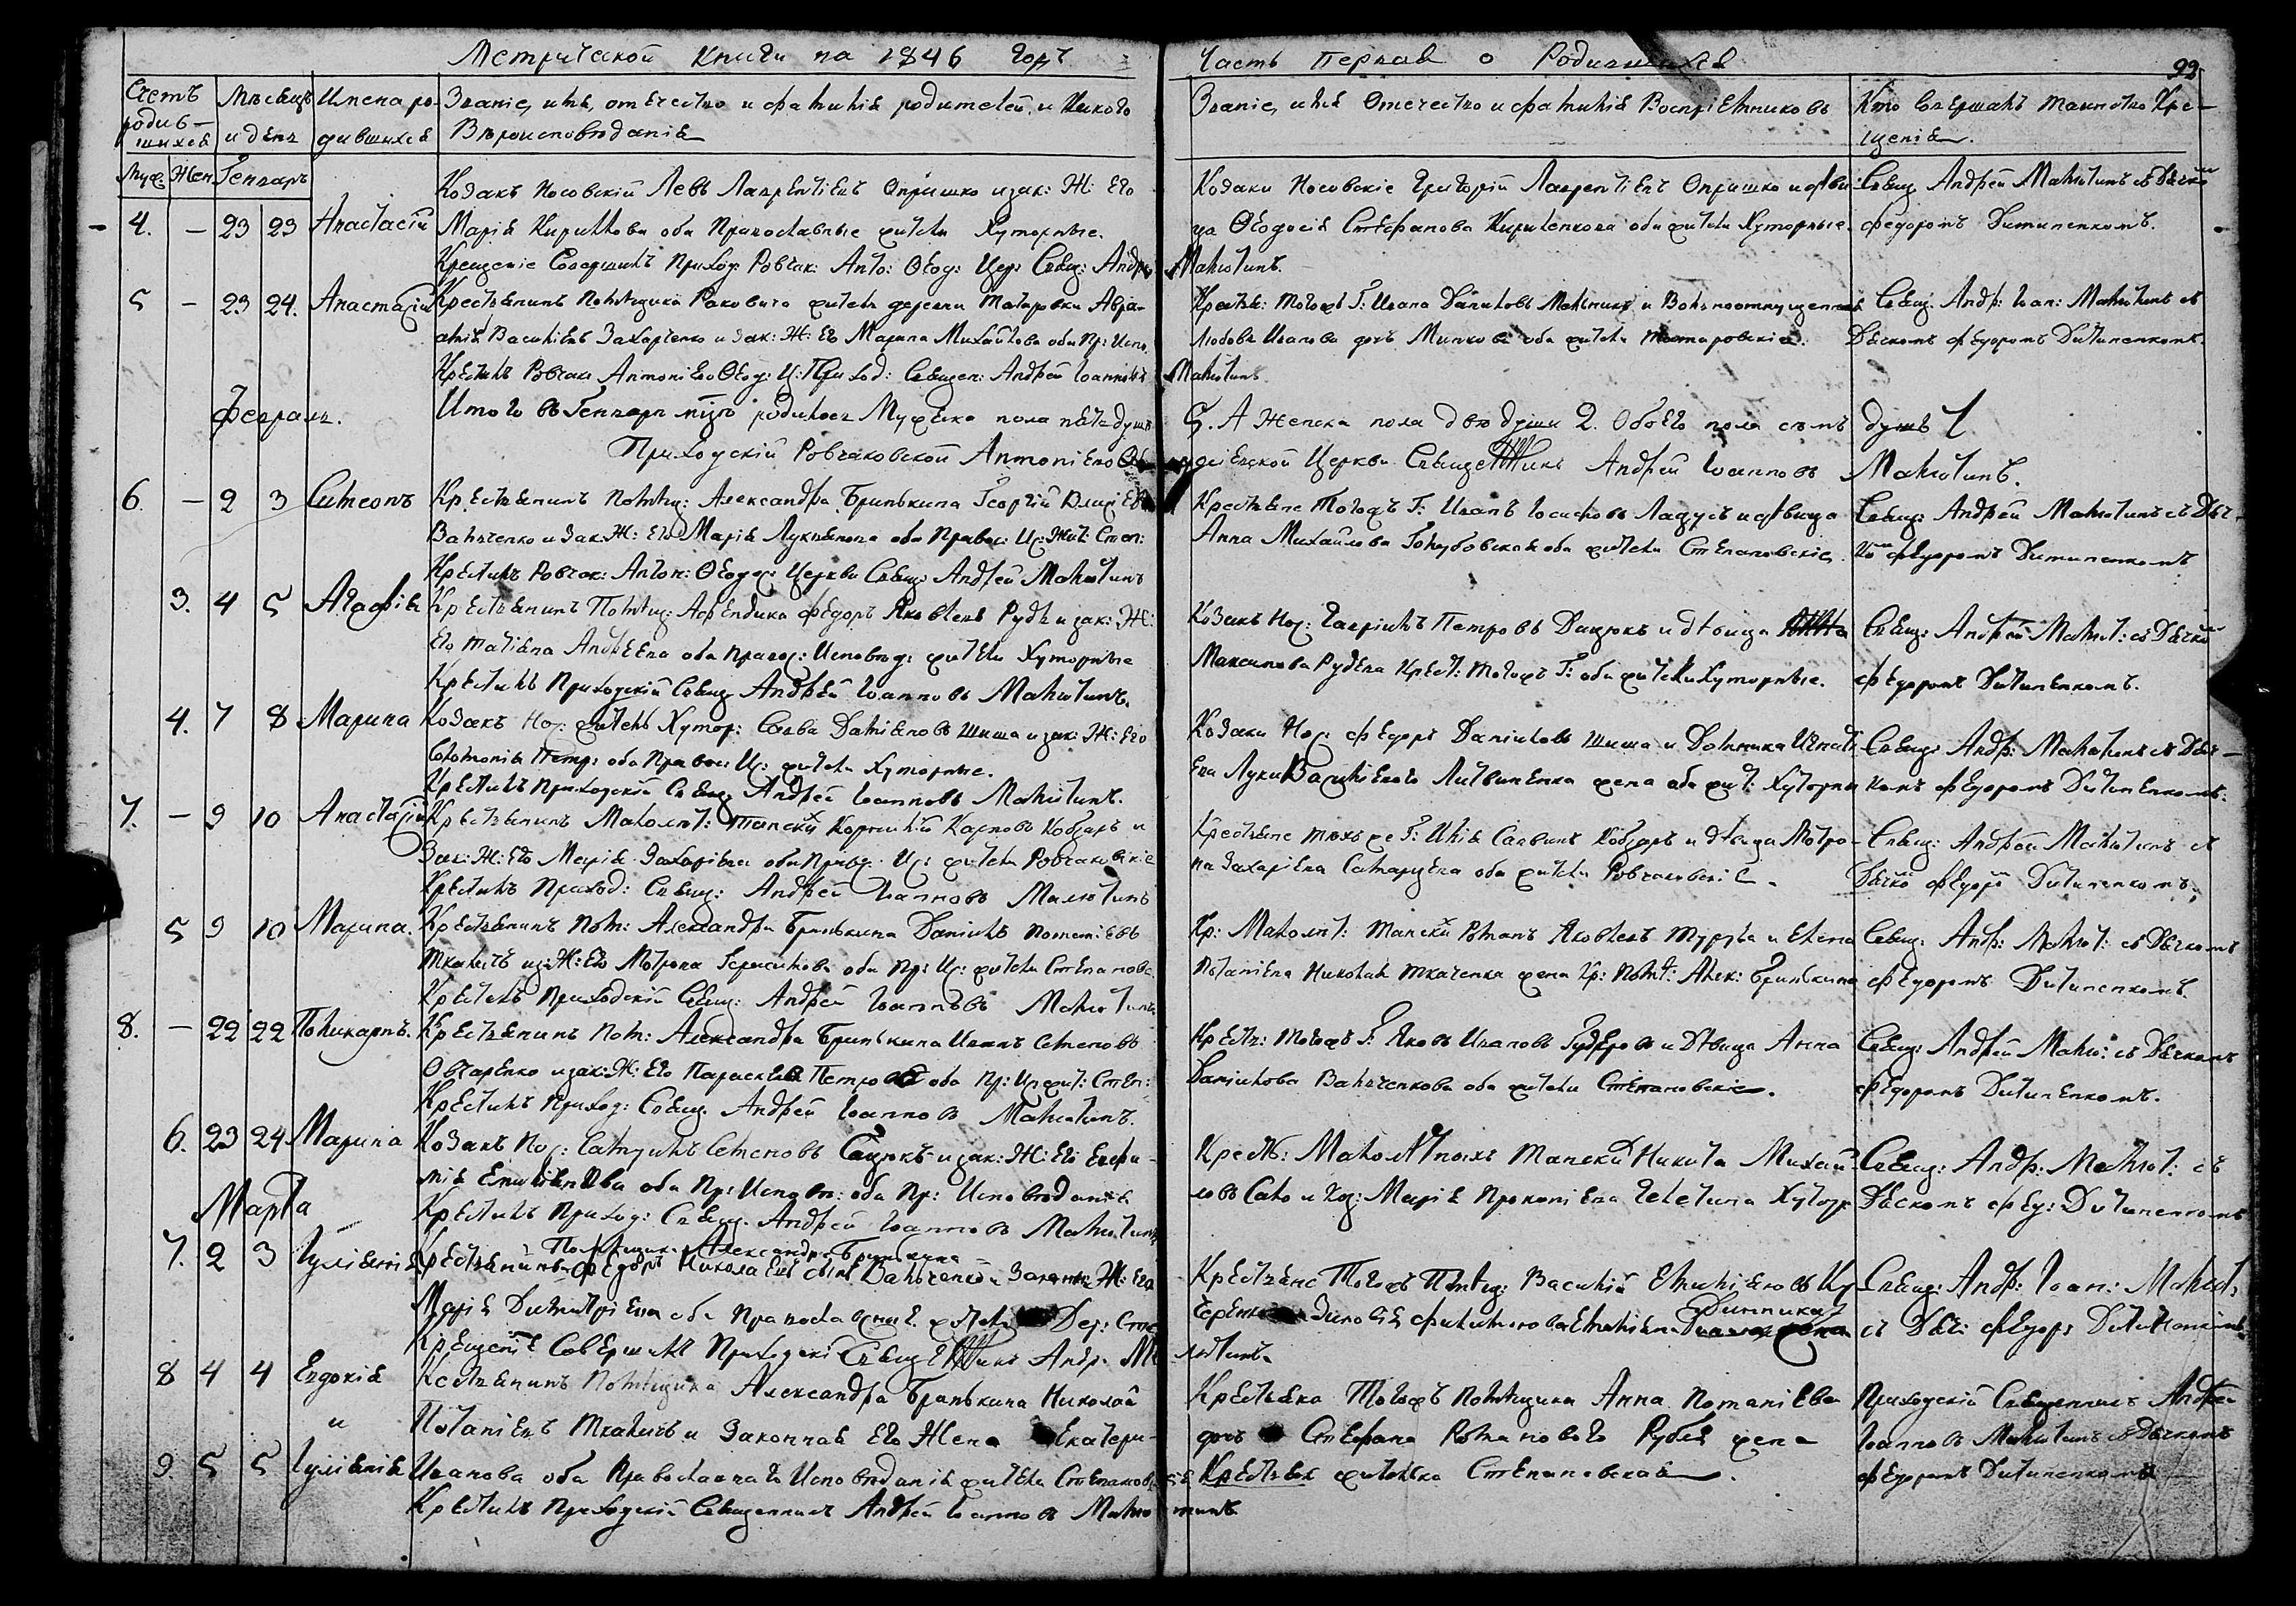 Метрической книги на 1846 годъ
Часть Первая о Родившихся
92
Счетъ родившихся
Мѣсяцъ и день
Имена родившихся
Званіе, имя, отечество и фамилія родителей, и какого Вѣроисповѣданія
Званіе, имя Отечество и фамилія Воспріемниковъ
Кто совершалъ таинство Крещенія.
Муж: Жен: Генваръ
4. – 23 23 Анастасій
Козакъ Носовскій Левъ Лаврентіевъ Опришко и зак: Ж: Его
Марія Кириллова оба Православные жители Хуторные.
Крещеніе Совершилъ Приход: Ровчак: Анто: Ѳеод: Цер: Свящ: Андрей Малютинъ.
Козаки Носовскіе Григорій Лаврентіевъ Опришко и дѣви
ца Ѳеодосія Стефанова Кириленкова оба жители Хуторные.
Свящ: Андрей Малютинъ съ Дьячко
Федоромъ Литиненкомъ.
5 – 23 24. Анастасій
Крестьянинъ Помѣщика Раковича жители деревни Татаровки Авра-
амій Васильевъ Захарченко и Зак: Ж: Его Марина Михайлова оба Пр: Испо.
Крестилъ Ровчак: Антоніево Ѳеод: Ц: Приход: Священ: Андрей Іоанновъ Малютинъ
Крестья: Тогожъ Г: Ивана Даниловъ Мельникъ и Вольноотпущенная
Любовь Иванова дочь Милкова оба жители Татаровскіе.
Свящ: Андр: Іоан: Малютинъ съ
Дьячкомъ Федоромъ Литиненкомъ.
Февраль.
Итого въ Генварѣ мцѣ родилось Мужеска пола пять душъ 5. А Женска пола двѣ души 2. Обоего пола семь душъ 7
Приходскій Ровчаковской Антоніево Ѳеодосіевской Церкви Священникъ Андрей Іоанновъ Малютинъ.
6. – 2 3 Симеонъ
Крестьянинъ Помѣщ: Александра Бринькина Георгій
Вальченко и Зак: Ж: Его Марія Лукьянова оба Правос: Ис: Жит: Степ:
Крестилъ Ровчак: Антон: Ѳеодос: Церкви Свящ: Андрей Малютинъ
Крестьяне Тогожъ Г: Иванъ Іосифовъ Ладусь и дѣвица
Анна Михайлова Голубовская оба жители Степановскіе.
Свящ: Андрей Малютинъ съ Дьяч-
ко Федоромъ Литиненкомъ
3. 4 5 Агафія
Крестьянинъ Помѣщ: Афендика Федоръ Яковлевъ Рудь и зак: Ж:
Его Татіана Андреева оба Правос: Исповѣд: жители Хуторные
Крестилъ Приходскій Свящ: Андрей Іоанновъ Малютинъ.
Козакъ Нос: Гавріилъ Петровъ Дацюкъ и дѣвица Анна
Максимова Рудева Крест: Тогожъ Г: оба жители Хуторные.
Свящ: Андрей Малют: съ Дьячко
Федоромъ Литиненкомъ.
4. 7 8 Марина
Козакъ Нос: житель Хутор: Савва Даміановъ Шиша и зак: Ж: Его
Соломонія Петр: оба Правос: Ис: жители Хуторные.
Крестилъ Приходскій Свящ: Андрей Іоанновъ Малютинъ.
Козаки Нос: Федоръ Даниловъ Шиша и Домника Игнатi
ева Луки Васильевого Литвиненка жена оба жит: Хуторны
Свящ: Андр: Малютинъ съ Дьяч-
комъ Федоромъ Литиненкомъ.
7. – 9 10 Анастасій
Крестьянинъ Малолѣт: Танских Корнилій Карповъ Кобзарь и
Зак: Ж: Его Марія Захаріева оба Прав: Ис: жители Ровчаковскіе
Крестилъ Приход: Свящ: Андрей Іоанновъ Малютинъ
Крестьяне тѣхъ же Г: Илія Саввинъ Кобзарь и дѣвица Мотро-
на Захаріева оба жители Ровчаковскіе.
Свящ: Андрей Малютинъ съ
Дьячко Федоро Литиненкомъ.
5 9 10 Марина.
Крестьянинъ Пом: Александра Бринькина Даніилъ Потапіевъ
Ткачъ из: Ж: Его Мотрона Герасимова оба Пр: Ис: жители Степановс.
Крестилъ Приходскій Свящ: Андрей Іоанновъ Малютинъ
Кр: Малолѣт: Танских Романъ Яковлевъ и Елена
Потапіева Николая Ткаченка жена Кр: Пом: Алек: Бринькина
Свящ: Андр: Малют: съ Дьячкомъ
Федоромъ Литиненкомъ.
8. – 22 22 Поликарпъ.
Крестьянинъ Пом: Александра Бринькина Иванъ Семеновъ
Овчаренко и зак: Ж: Его Параскевія Петрова оба Пр: Ис: жит: Степ:
Крестилъ Приход: Свящ: Андрей Іоанновъ Малютинъ.
Крестья: Тогожъ Г: Яковъ Ивановъ и Дѣвица Анна
Данилова Вальченкова оба жители Степановскіе.
Свящ: Андрей Малю: съ Дьячкомъ
Федоромъ Литиненкомъ.
6. 23 24 Марина
Козакъ Нос: Самуилъ Семеновъ Сацюкъ и зак: Ж: Его Евфи-
мія Емиліянова оба Пр: Исповѣ: оба Пр: Исповѣданія
Крестилъ Приход: Свящ: Андрей Іоанновъ Малютинъ
Крест: Малолѣтныхъ Танских Никита Михай
ловъ Сало и Коз: Марія Прокопіева Хутор:
Свящ: Андр: Малют: съ
Дьячкомъ Фед: Литиненкомъ
Марта
7. 2 3 Іуліянія
Помѣщика Александра Бринькина
Крестьянинъ Федоръ Николаевъ сынъ Вальченко и Законная Ж: Его
Марія Димитріева оба Православныя жители Дер: Сте
Крещеніе Совершилъ Приходскій Священникъ Андр: Малютинъ.
Крестьяне Тогожъ Помѣщ: Василій Емиліановъ Ку
черенко Зиновія Филимонова Емиліана Динника
Свящ: Андр: Іоан: Малют:
съ Дьяч: Федор: Литиненкомъ
8 4 4 Евдокія
и
9. 5 5 Іуліянія
Крестьянинъ Помѣщика Александра Бринькина Николай
Потапіевъ Ткачъ и Законная Его Жена Екатери-
Иванова оба Православнаго Исповѣданія жители Степановскіе
Крестилъ Приходскій Священникъ Андрей Іоанновъ Малютинъ
Крестьянка Тогожъ Помѣщика Анна Потапіева
дочь Стефана Романового Рубля жена
Крестьян: жителька Степановская.
Приходскій Священникъ Андрей
Іоанновъ Малютинъ съ Дьячкомъ
Федоромъ Литиненкомъ